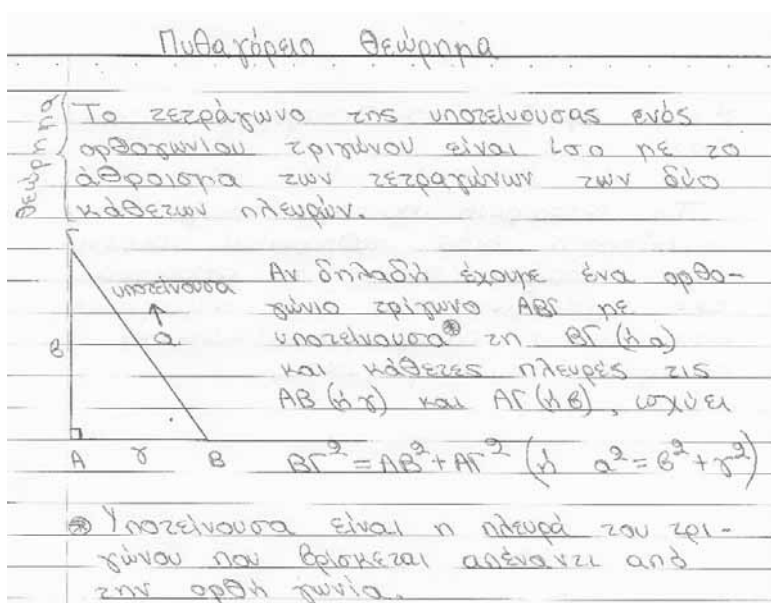 Πυθαγόρειο Θεώρημα
θεώρημα
Το τετράγωνο της υποτείνουσας ενός
ορθογωνίου τριγώνου είναι ίσο με το
άθροισμα των τετραγώνων των δύο
κάθετων πλευρών.
Γ
υποτείνουσα
α
β
Α γ Β
Αν δηλαδή έχουμε ένα ορθο-
γώνιο τρίγωνο ΑΒΓ με
υποτείνουσα⊛ τη ΒΓ (ή α)
και κάθετες πλευρές τις
ΑΒ (ή γ) και ΑΓ (ή β), ισχύει
ΒΓ² = ΑΒ² + ΑΓ² (ή α² = β² + γ²)
⊛ Υποτείνουσα είναι η πλευρά του τρι-
γώνου που βρίσκεται απέναντι από
την ορθή γωνία.